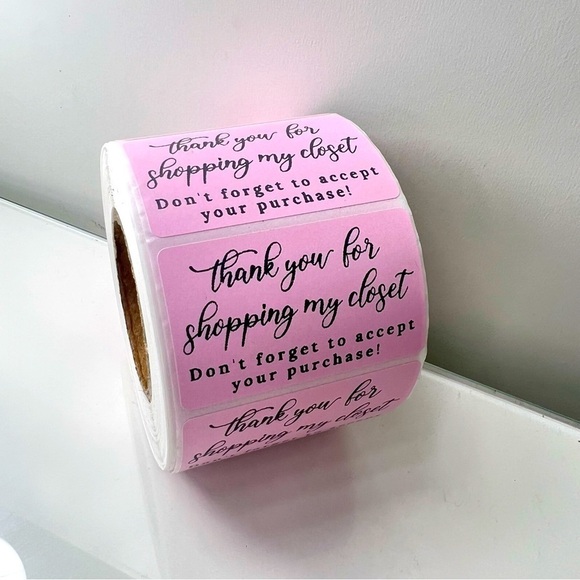 thank you for
shopping my closet
Don't forget to accept
your purchase!
thank you for
shopping my closet
Don't forget to accept
your purchase!
thank you for
shopping my closet